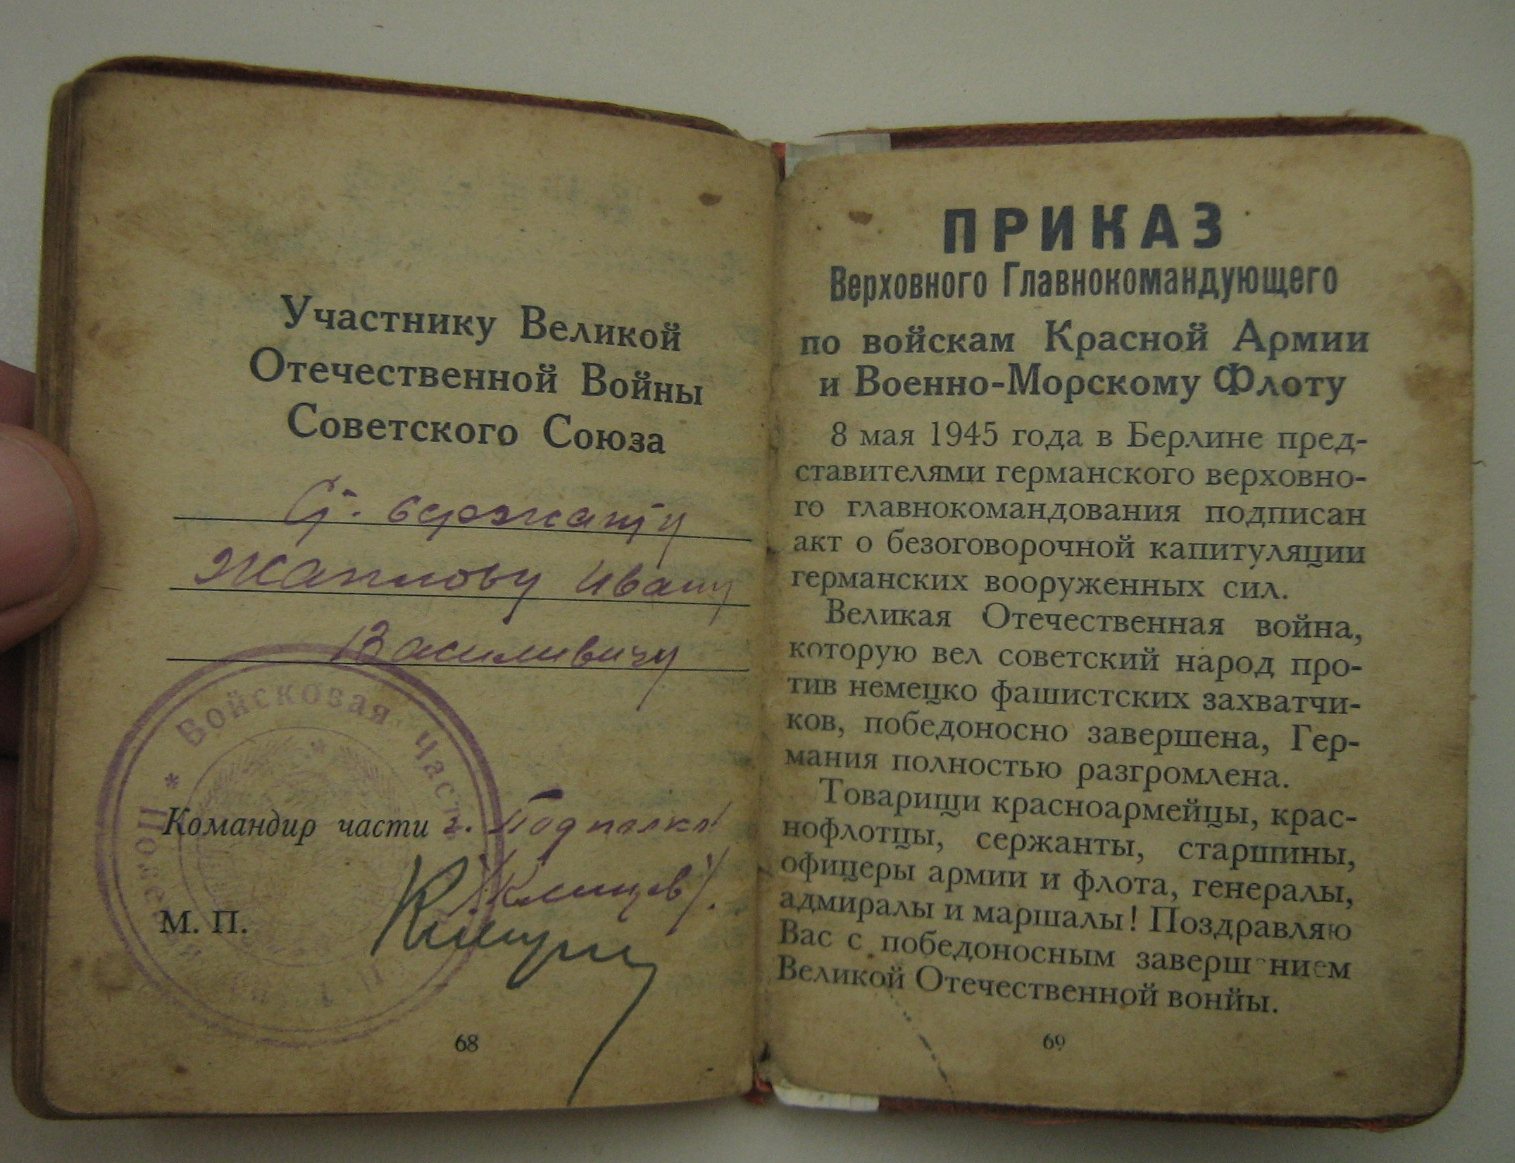 Участнику Великой
Отечественной Войны
Советского Союза
Ст. сержанту
Жаплову Ивану
Василивичу
Войсковая часть
Командир части г. Подполк
/Клищев/.
М. П.
68
ПРИКАЗ
Верховного Главнокомандующего
по войскам Красной Армии
и Военно-Морскому Флоту
8 мая 1945 года в Берлине пред-
ставителями германского верховно-
го главнокомандования подписан
акт о безоговорочной капитуляции
германских вооруженных сил.
Великая Отечественная война,
которую вел советский народ про-
тив немецко фашистских захватчи-
ков, победоносно завершена, Гер-
мания полностью разгромлена.
Товарищи красноармейцы, крас-
нофлотцы, сержанты, старшины,
офицеры армии и флота, генералы,
адмиралы и маршалы! Поздравляю
Вас с победоносным завершением
Великой Отечественной вонйы.
69